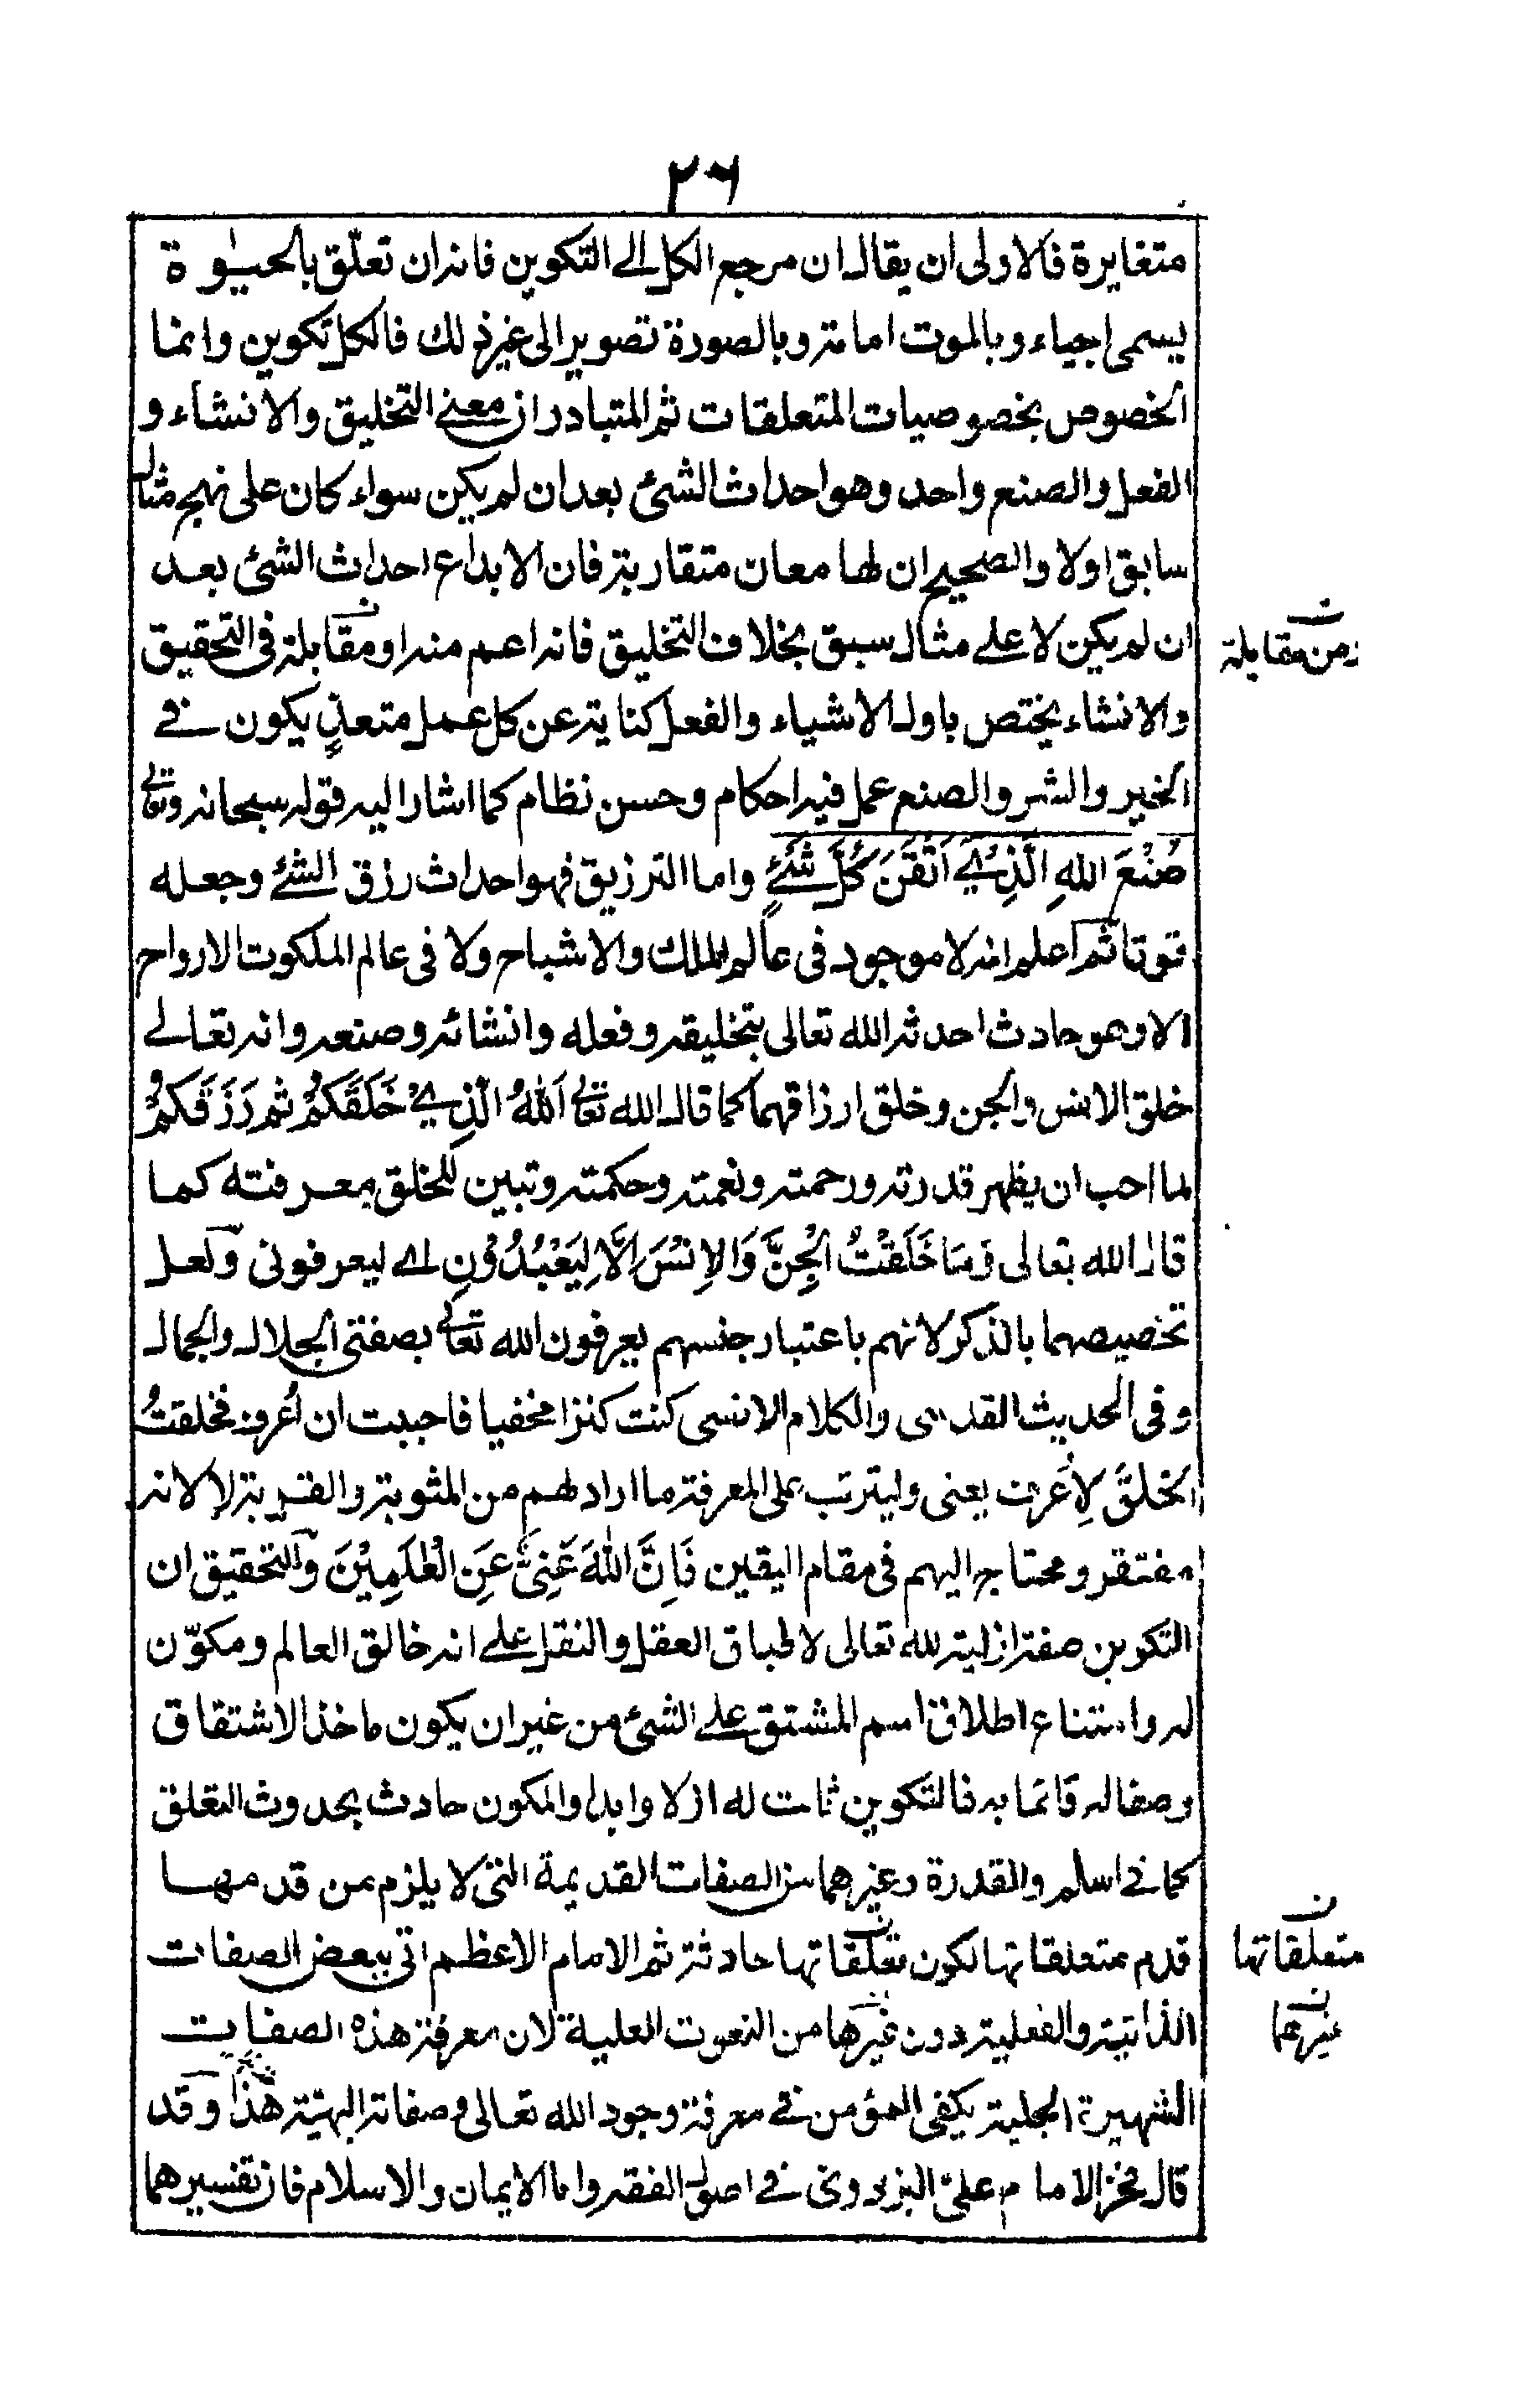 ٢٦
متغايرة فالاولى ان يقال ان مرجع الكل الى التكوين فانه ان تعلّق بالحيٰوة
يسمى احياء وبالموت اماتة وبالصورة تصويرا الى غير ذلك فالكل تكوين وانما
الخصوص بخصوصيات المتعلقات ثم المتبادر ان معنى التخليق والانشاء و
الفعل والصنع واحد وهو احداث الشئ بعد ان لم يكن سواء كان على نهج مثال
سابق اولا والصحيح ان لها معان متقاربة فان الابداع احداث الشئ بعد
ان لم يكن لا على مثال سبق بخلاف التخليق فانه اعم منه او مقابلة فى التحقيق
ن من مقابلة
والانشاء يختص باول الاشياء والفعل كناية عن كل عمل متعدٍ يكون فى
الخير والشر والصنع عمل فيه احكام وحسن نظام كما اشار اليه قوله سبحانه وتعالى
صُنْعَ اللهِ الَّذِيْ اَتْقَنَ كُلَّ شَئٍ واما الترزيق فهو احداث رزق الشئ وجعله
قوتا ثم اعلم انه لا موجود فى عالم الملك والاشباح ولا فى عالم الملكوت الارواح
الا وهو حادث احدثه الله تعالى بتخليقه وفعله وانشائه وصنعه وانه تعالى
خلق الانس والجن وخلق ارزاقهما كما قال الله تعالى اَللهُ الَّذِيْ خَلَقَكُمْ ثم رَزَقَكُمْ
لما احب ان يظهر قدرته ورحمته ونعمته وحكمته وتبين للخلق معرفته كما
قال الله تعالى وَمَا خَلَقْتُ الْجِنَّ وَالاِنْسَ اِلَّا لِيَعْبُدُوْنِ اى ليعرفونى ولعل
تخصيصهما بالذكر لانهم باعتبار جنسهم يعرفون الله تعالى بصفتى الجلال والجمال
وفى الحديث القدسى والكلام الانسى كنت كنزا مخفيا فاحببت ان اُعرف فخلقتُ
الخلقَ لِاُعرف يعنى وليترتب على المعرفة ما اراد لهم من المثوبة والقربة لا لانه
مفتقر ومحتاج اليهم فى مقام اليقين فَاِنَّ اللهَ غَنِىٌّ عَنِ الْعٰلَمِيْنَ والتحقيق ان
التكوين صفة ازلية لله تعالى لاطباق العقل والنقل على انه خالق العالم ومكوّن
له وامتناع اطلاق اسم المشتق على الشئ من غير ان يكون ماخذ الاشتقاق
وصفا له قائما به فالتكوين ثابت له ازلا وابدا والمكون حادث بحدوث التعلق
كما فى العلم والقدرة وغيرهما من الصفات القديمة التى لا يلزم من قدمها
قدم متعلقاتها لكون تعلقاتها حادثة ثم الامام الاعظم اتى ببعض الصفات
ن متعلقاتها
الذاتية والفعلية دون غيرها من النعوت العلية لان معرفة هذه الصفات
ن غيرهما
الشهيرة الجلية يكفى المؤمن فى معرفة وجود الله تعالى وصفاته البهية هٰذا وقد
قال فخر الاسلام علىّ البزدوى فى اصول الفقه واما الايمان والاسلام فان تفسيرهما